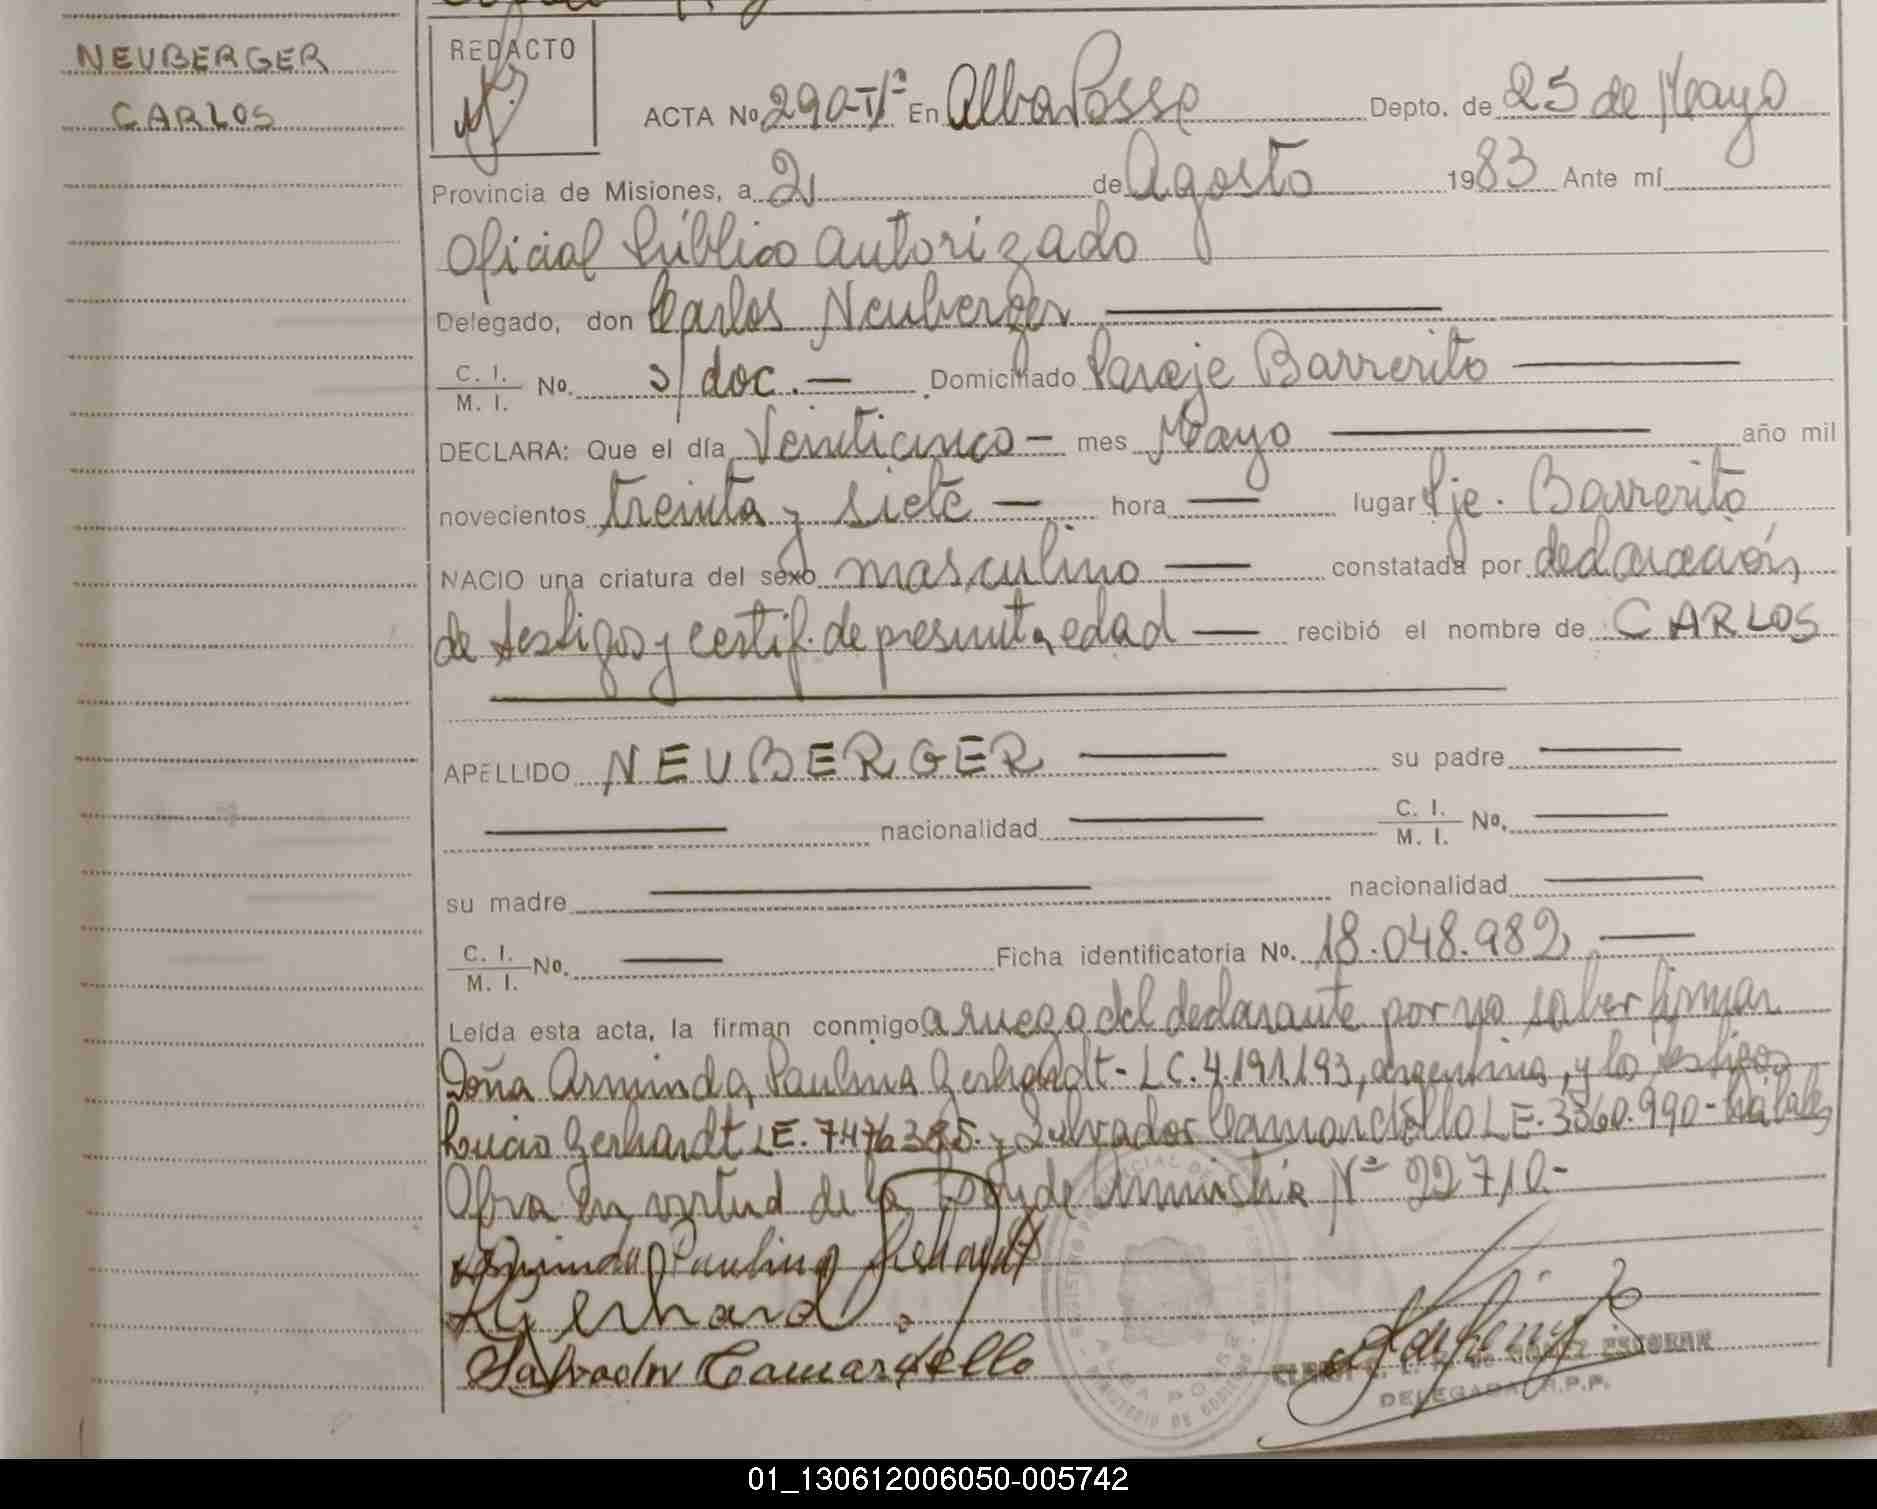 NEUBERGER
CARLOS
REDACTO
ACTA No 290-Tº En Alba Posse Depto. de 25 de Mayo
Provincia de Misiones, a 2 de Agosto 1983 Ante mí
Oficial Público autorizado
Delegado, don Carlos Neuberger
C. I. / M. I. No. s/doc. — Domiciliado Paraje Barrerito
DECLARA: Que el día Veinticinco — mes Mayo año mil
novecientos treinta y siete — hora — lugar Pje. Barrerito
NACIO una criatura del sexo masculino — constatada por declaración
de testigos y certif. de presunta edad — recibió el nombre de CARLOS
APELLIDO NEUBERGER — su padre —
— nacionalidad — C. I. / M. I. No. —
su madre — nacionalidad —
C. I. / M. I. No. — Ficha identificatoria No. 18.048.982 —
Leída esta acta, la firman conmigo a ruego del declarante por no saber firmar
Doña Arminda Paulina Gerhardt - LC. 4.191.193, argentina, y los testigos
Lucio Gerhardt LE. 7.476.385. y Salvador Camandello LE. 3560.990 -
Obra en virtud de la Ley de Amnistía Nº 22710 -
Arminda Paulina Gerhardt
L Gerhard
Salvador Camardello
ESCOBAR
DELEGADA R.P.P.
ALBA POSSE
01_130612006050-005742